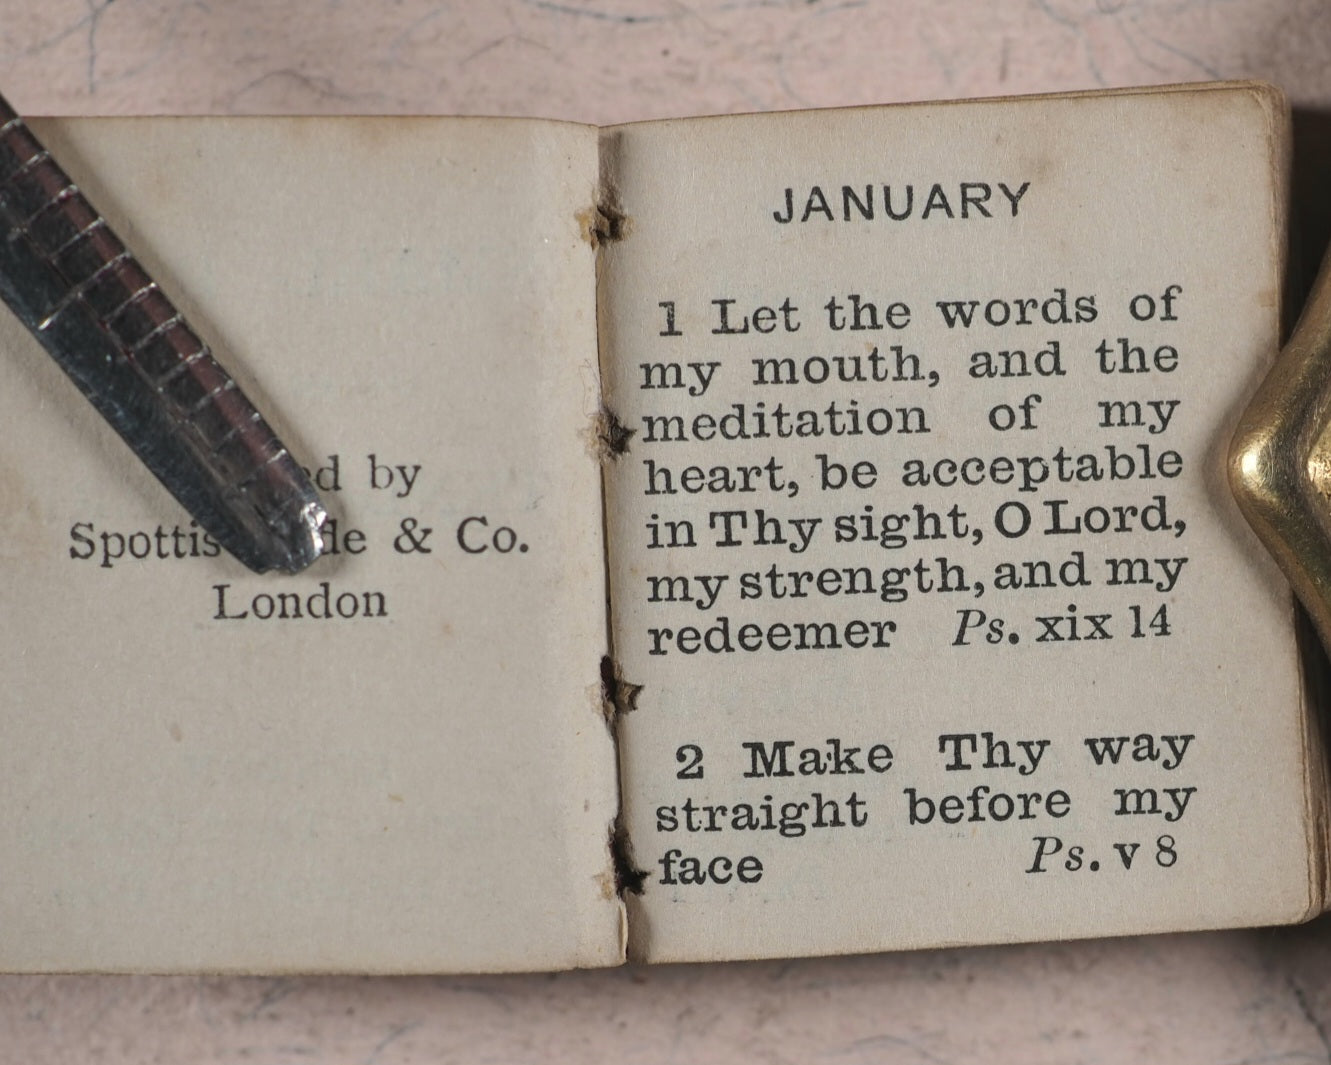 by
& Co.
London
JANUARY
1 Let the words of
my mouth, and the
meditation of my
heart, be acceptable
in Thy sight, O Lord,
my strength, and my
redeemer Ps. xix 14
2 Make Thy way
straight before my
face Ps. v 8